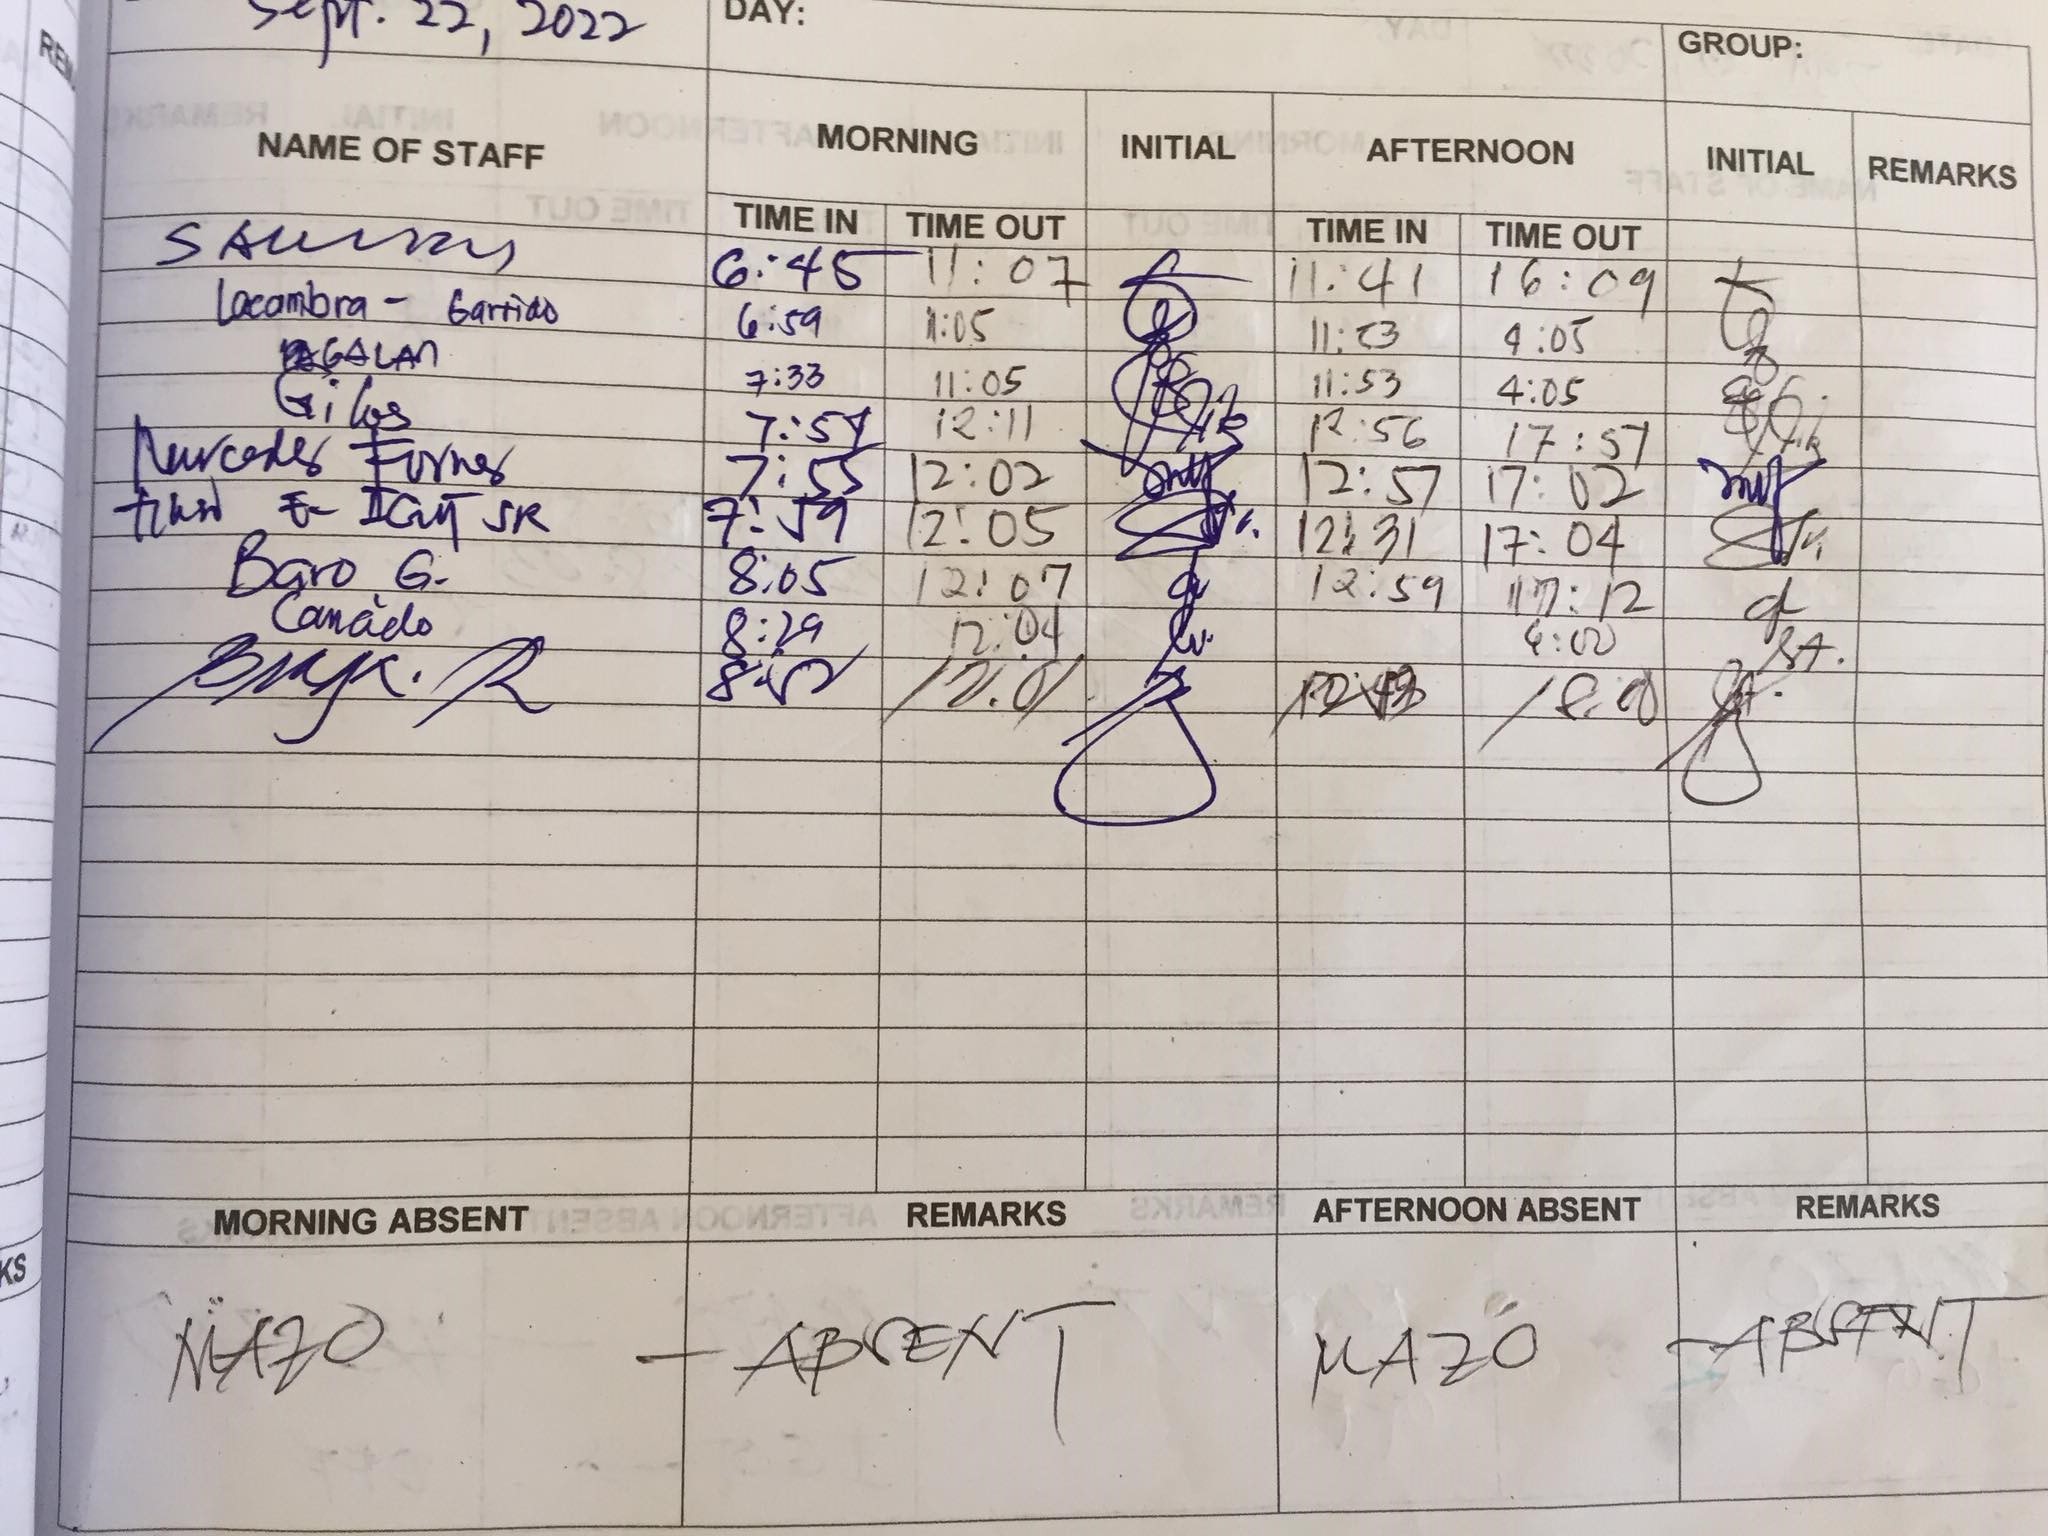 Sept. 22, 2022 DAY: GROUP:
NAME OF STAFF MORNING INITIAL AFTERNOON INITIAL REMARKS
TIME IN TIME OUT TIME IN TIME OUT
6:45 11:07 11:41 16:09
Lacambra - Garrido 6:59 11:05 11:23 4:05
PAGALAN 7:33 11:05 11:53 4:05
Gilos 7:57 12:11 12:56 17:57
Mercedes Fornes 7:55 12:02 12:57 17:02
7:59 12:05 12:31 17:04
Baro G. 8:05 12:07 12:59 17:12
Canado 8:29 12:04 4:00
12:43
MORNING ABSENT REMARKS AFTERNOON ABSENT REMARKS
MAZO - ABSENT MAZO - ABSENT